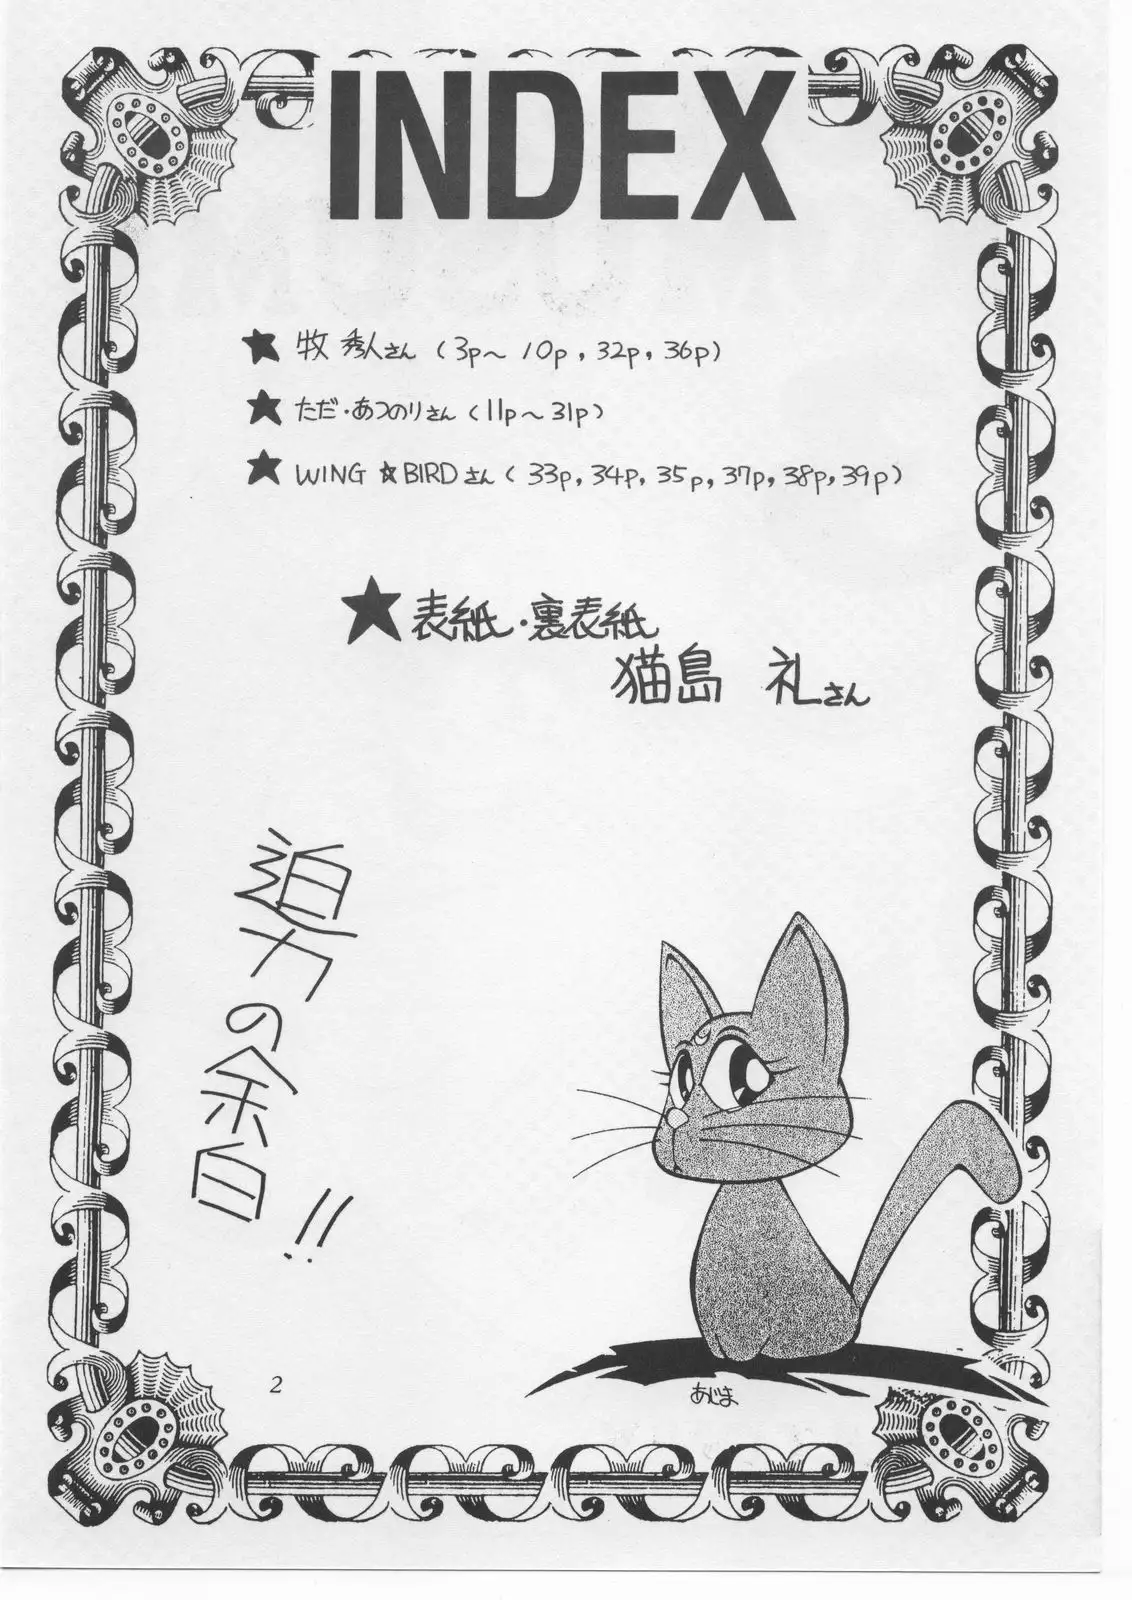 INDEX
★ 牧 秀人さん (3p～10p, 32p, 36p)
★ ただ・あつのりさん (11p～31p)
★ WING☆BIRDさん (33p, 34p, 35p, 37p, 38p, 39p)
★ 表紙・裏表紙
猫島 礼さん
迫力の余白!!
あじま
2